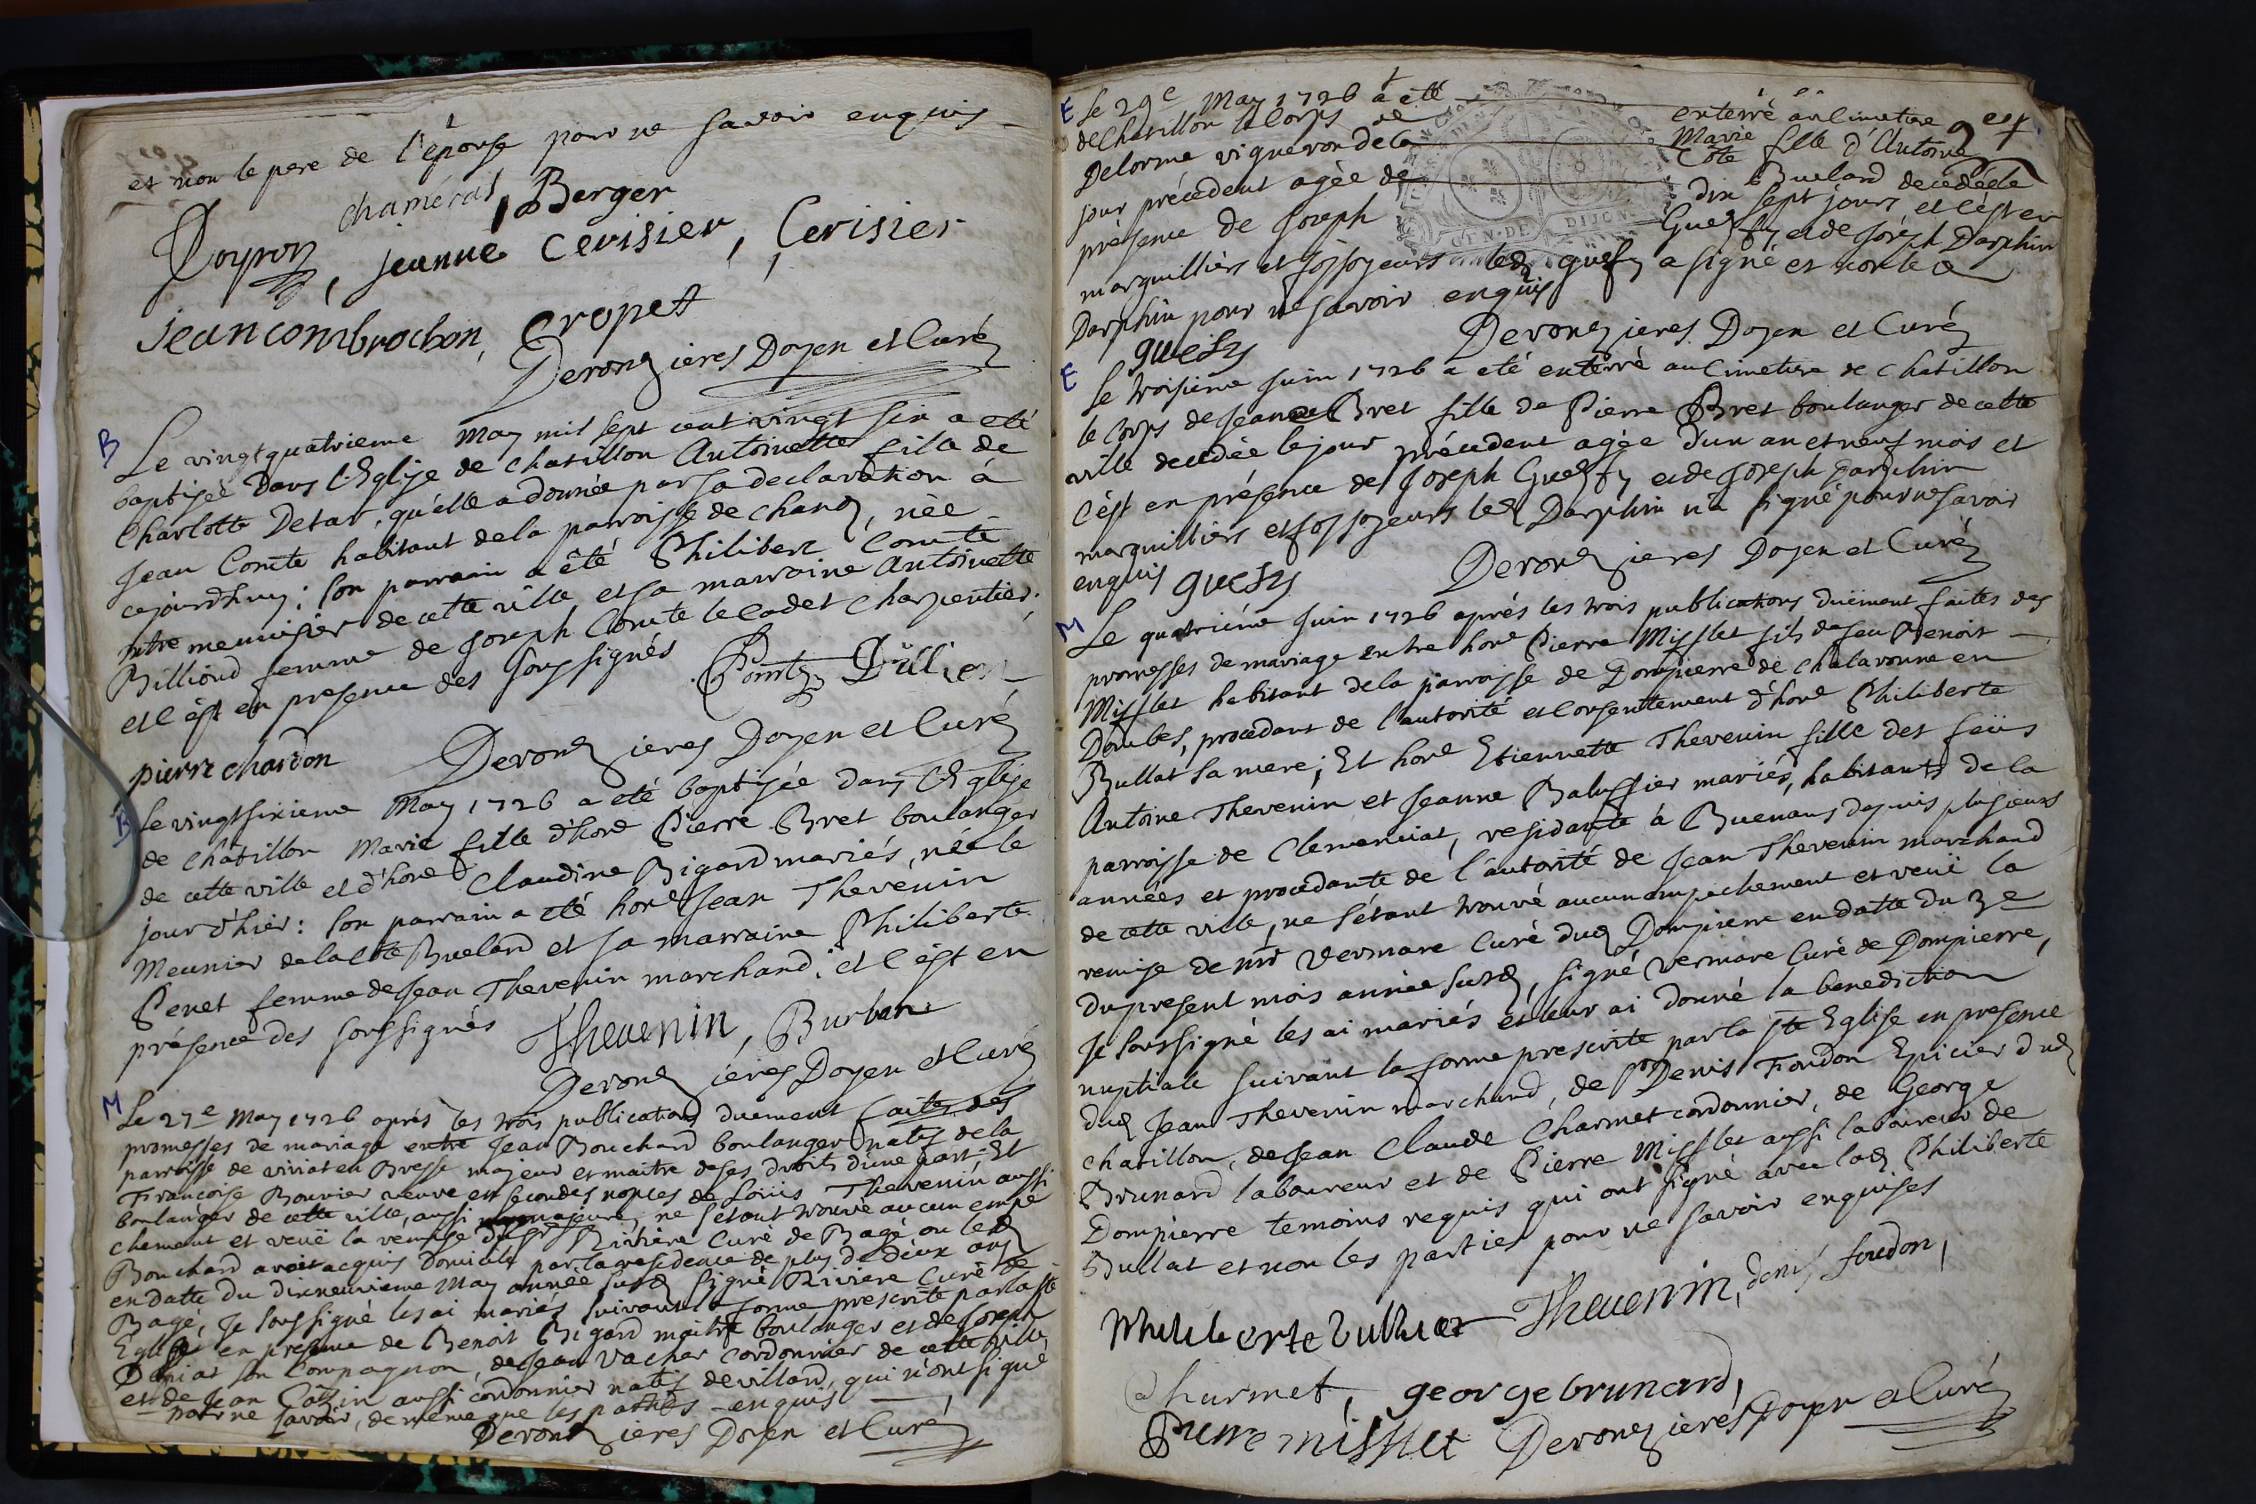 et non le pere de l'épouse pour ne savoir enquis
chaméras, Berger
Poypon, jeanne cerisier, Cerisier
jean conbrochon, cropet
Deronzieres Doyen et Curé
B
Le vingt quatrieme May mil sept cent vingt six a eté
baptisée dans l'Eglise de chatillon Antoinette fille de
Charlotte Detar, qu'elle a donnée par sa declaration à
Jean Comte habitant de la parroisse de chanoz, née
cejourdhuy: son parrain a été Philibert Comte
mtre menuisier de cette ville, et sa marraine Antoinette
Billioud femme de Joseph Comte le cadet charpentier
et c'est en presence des soussignés Comte
pierre chardon
Deronzieres Doyen et Curé
B
Le vingtsixieme May 1726 a eté baptisée dans l'Eglise
de châtillon Marie fille d'hone Pierre Bret boulanger
de cette ville et d'hone Claudine Bigard mariés, née le
jour d'hier: son parrain a eté hone Jean Thevenin
Meunier de la côte Buelard et sa marraine Philiberte
Penet femme de Jean Thevenin marchand: et c'est en
présence des soussignés Thevenin, Burban
Deronzieres Doyen et Curé
M
Le 27e May 1726 aprés les trois publications duement faites des
promesses de mariage entre Jean Bouchard boulanger natif de la
parroisse de viriat en Bresse majeur et maitre de ses droits d'une part: Et
Françoise Bouvier veuve en secondes nopces de Loüis Thevenin aussi
boulanger de cette ville, aussi majeure, ne s'étant trouvé aucun empe
chement et veuë la remise de Riviere Curé de Bagé ou led
Bouchard avoit acquis domicile par la residence de plus de deux ans
en datte du dixneuvieme May année susd signé Riviere Curé de
Bagé, Je soussigné les ai mariés suivant la forme prescrite par la ste
Eglise en presence de Benoit Bigard maitre boulanger et de Joseph
son Compagnon, de Jean Vacher cordonnier de cette ville,
et de Jean aussi cordonnier natif de villard, qui n'ont signé
pour ne savoir, de même que les parties enquis
Deronzieres Doyen et Curé
9 est
E
Le 29e May 1726 a été enterré au Cimetiere
de Chatillon le Corps de Marie fille d'Antoine
Delorme vigneron de la Côte Buelard decedée le
jour précedent agée de dix sept jours, et c'est en
présence de Joseph Guesy et de Joseph Darphin
marguilliers et fossoyeurs led guesy a signé et non led
Darphin pour ne savoir enquis
guesy Deronzieres Doyen et Curé
E
Le troisiéme Juin 1726 a eté enterré au Cimetiere de chatillon
le corps de Jeanne Bret fille de Pierre Bret boulanger de cette
ville decedée le jour précedent agée d'un an et neuf mois et
c'est en présence de Joseph Guesy et de Joseph Darphin
marguilliers et fossoyeurs led Darphin n'a signé pour ne savoir
enquis guesy Deronzieres Doyen et Curé
M
Le quatriéme Juin 1726 aprés les trois publications duëment faites des
promesses de mariage entre hone Pierre Missllet fils de feu Benoit
Missllet habitant de la parroisse de Dompierre de Chalaronne en
Dombes, procedant de l'autorité et consentement d'hone Philiberte
Bullat sa mere; Et hone Etiennette Thevenin fille des feüs
Antoine Thevenin et Jeanne Balussier mariés, habitants de la
parroisse de Clemenciat, residante à Buenans depuis plusieurs
années et procedante de l'autorité de Jean Thevenin marchand
de cette ville, ne s'étant trouvé aucun empechement et veuë la
remise de mr vermare Curé dud Dompierre en datte du 3e
du present mois année susd, signé vermare Curé de Dompierre,
Je soussigné les ai mariés et leur ai donné la benediction
nuptiale suivant la forme prescrite par la ste Eglise en presence
dud Jean Thevenin marchand, de Denis Foudon Epicier dud
chatillon, de Jean Claude Charmet cordonnier, de George
Brunard laboureur et de Pierre Missllet aussi laboureur de
Dompierre temoins requis qui ont signé avec lad Philiberte
Bullat et non les parties pour ne savoir enquises
Thevenin, denis foudon,
charmet, george brunard,
Pierre missllet Deronzieres Doyen et Curé